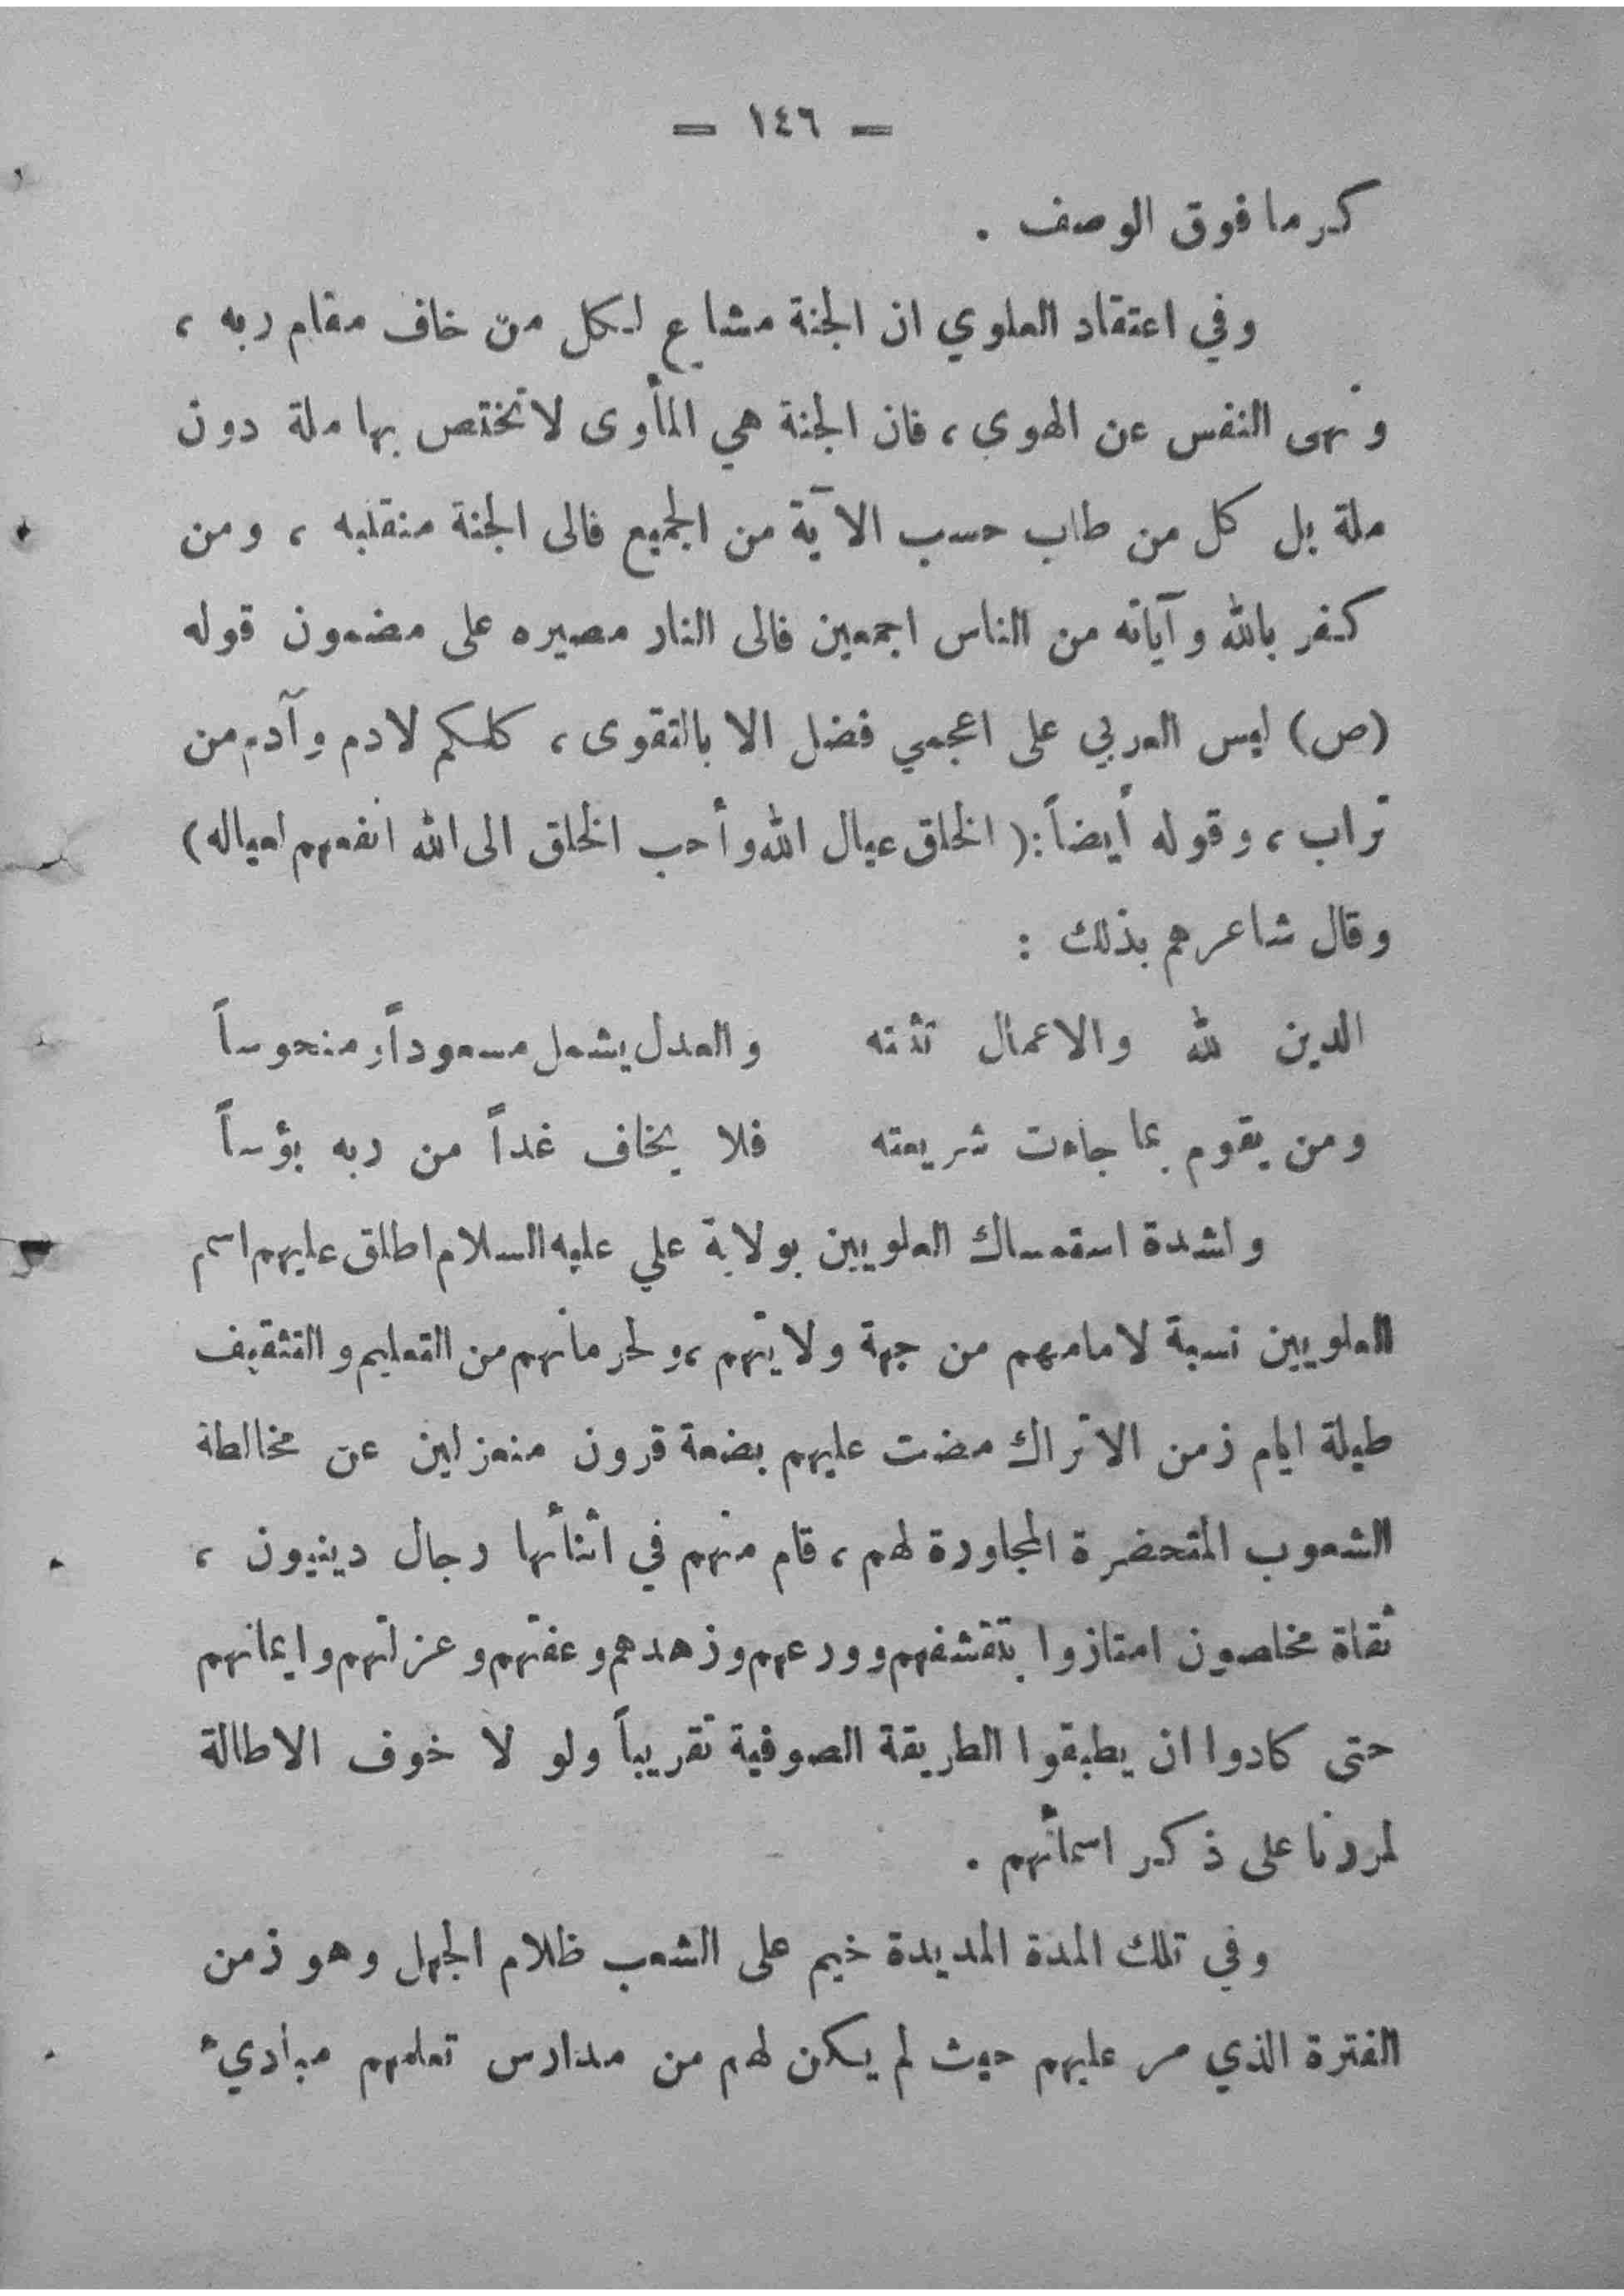 = ١٤٦ =
كرما فوق الوصف .
وفي اعتقاد العلوي ان الجنة مشاع لكل من خاف مقام ربه ،
ونهى النفس عن الهوى ، فان الجنة هي المأوى لا تختص بها ملة دون
ملة بل كل من طاب حسب الآية من الجميع فالى الجنة منقلبه ، ومن
كفر بالله وآياته من الناس اجمعين فالى النار مصيره على مضمون قوله
(ص) ليس العربي على اعجمي فضل الا بالتقوى ، كلكم لادم وآدم من
تراب ، وقوله أيضاً : ( الخلق عيال الله وأحب الخلق الى الله انفعهم لعياله )
وقال شاعرهم بذلك :
الدين لله والاعمال تثبته والعدل يشمل مسعوداً ومنحوساً
ومن يقوم بما جاءت شريعته فلا يخاف غداً من ربه بؤساً
ولشدة استمساك العلويين بولاية علي عليه السلام اطلق عليهم اسم
العلويين نسبة لامامهم من جهة ولايتهم ، ولحرمانهم من التعليم والتثقيف
طيلة ايام زمن الاتراك مضت عليهم بضعة قرون منعزلين عن مخالطة
الشعوب المتحضرة المجاورة لهم ، قام منهم في اثنأنها رجال دينيون ،
ثقاة مخلصون امتازوا بتقشفهم وورعهم وزهدهم وعفتهم وعزلتهم وايمانهم
حتى كادوا ان يطبقوا الطريقة الصوفية تقريباً ولو لا خوف الاطالة
لمررنا على ذكر اسمأنهم .
وفي تلك المدة المديدة خيم على الشعب ظلام الجهل وهو زمن
الفترة الذي مر عليهم حيث لم يكن لهم من مدارس تعلمهم مبادىء